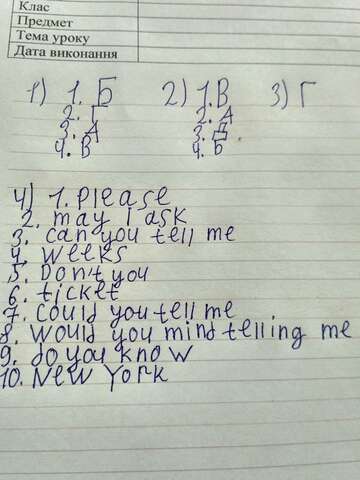 Клас
Предмет
Тема уроку
Дата виконання
1) 1. Б 2) 1. В 3) Г
2. Г 2. А
3. А 3.
4. В 4. Б
4) 1. Please
2. may I ask
3. can you tell me
4. weeks
5. Don't you
6. ticket
7. could you tell me
8. would you mind telling me
9. do you know
10. New York